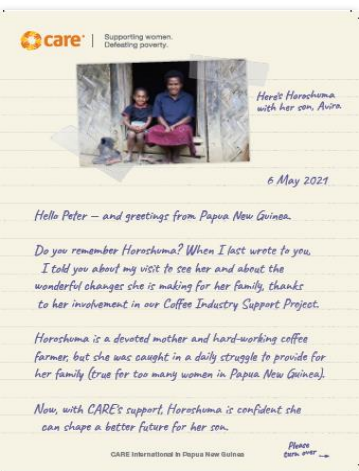 care
Supporting women.
Defeating poverty.
Here's Horoshuma
with her son, Avira
6 May 2021
Hello Peter – and greetings from Papua New Guinea.
Do you remember Horoshuma? When I last wrote to you,
I told you about my visit to see her and about the
wonderful changes she is making for her family, thanks
to her involvement in our Coffee Industry Support Project.
Horoshuma is a devoted mother and hard-working coffee
farmer, but she was caught in a daily struggle to provide for
her family (true for too many women in Papua New Guinea).
Now, with CARE's support, Horoshuma is confident she
can shape a better future for her son.
CARE International in Papua New Guinea
Please
turn over →